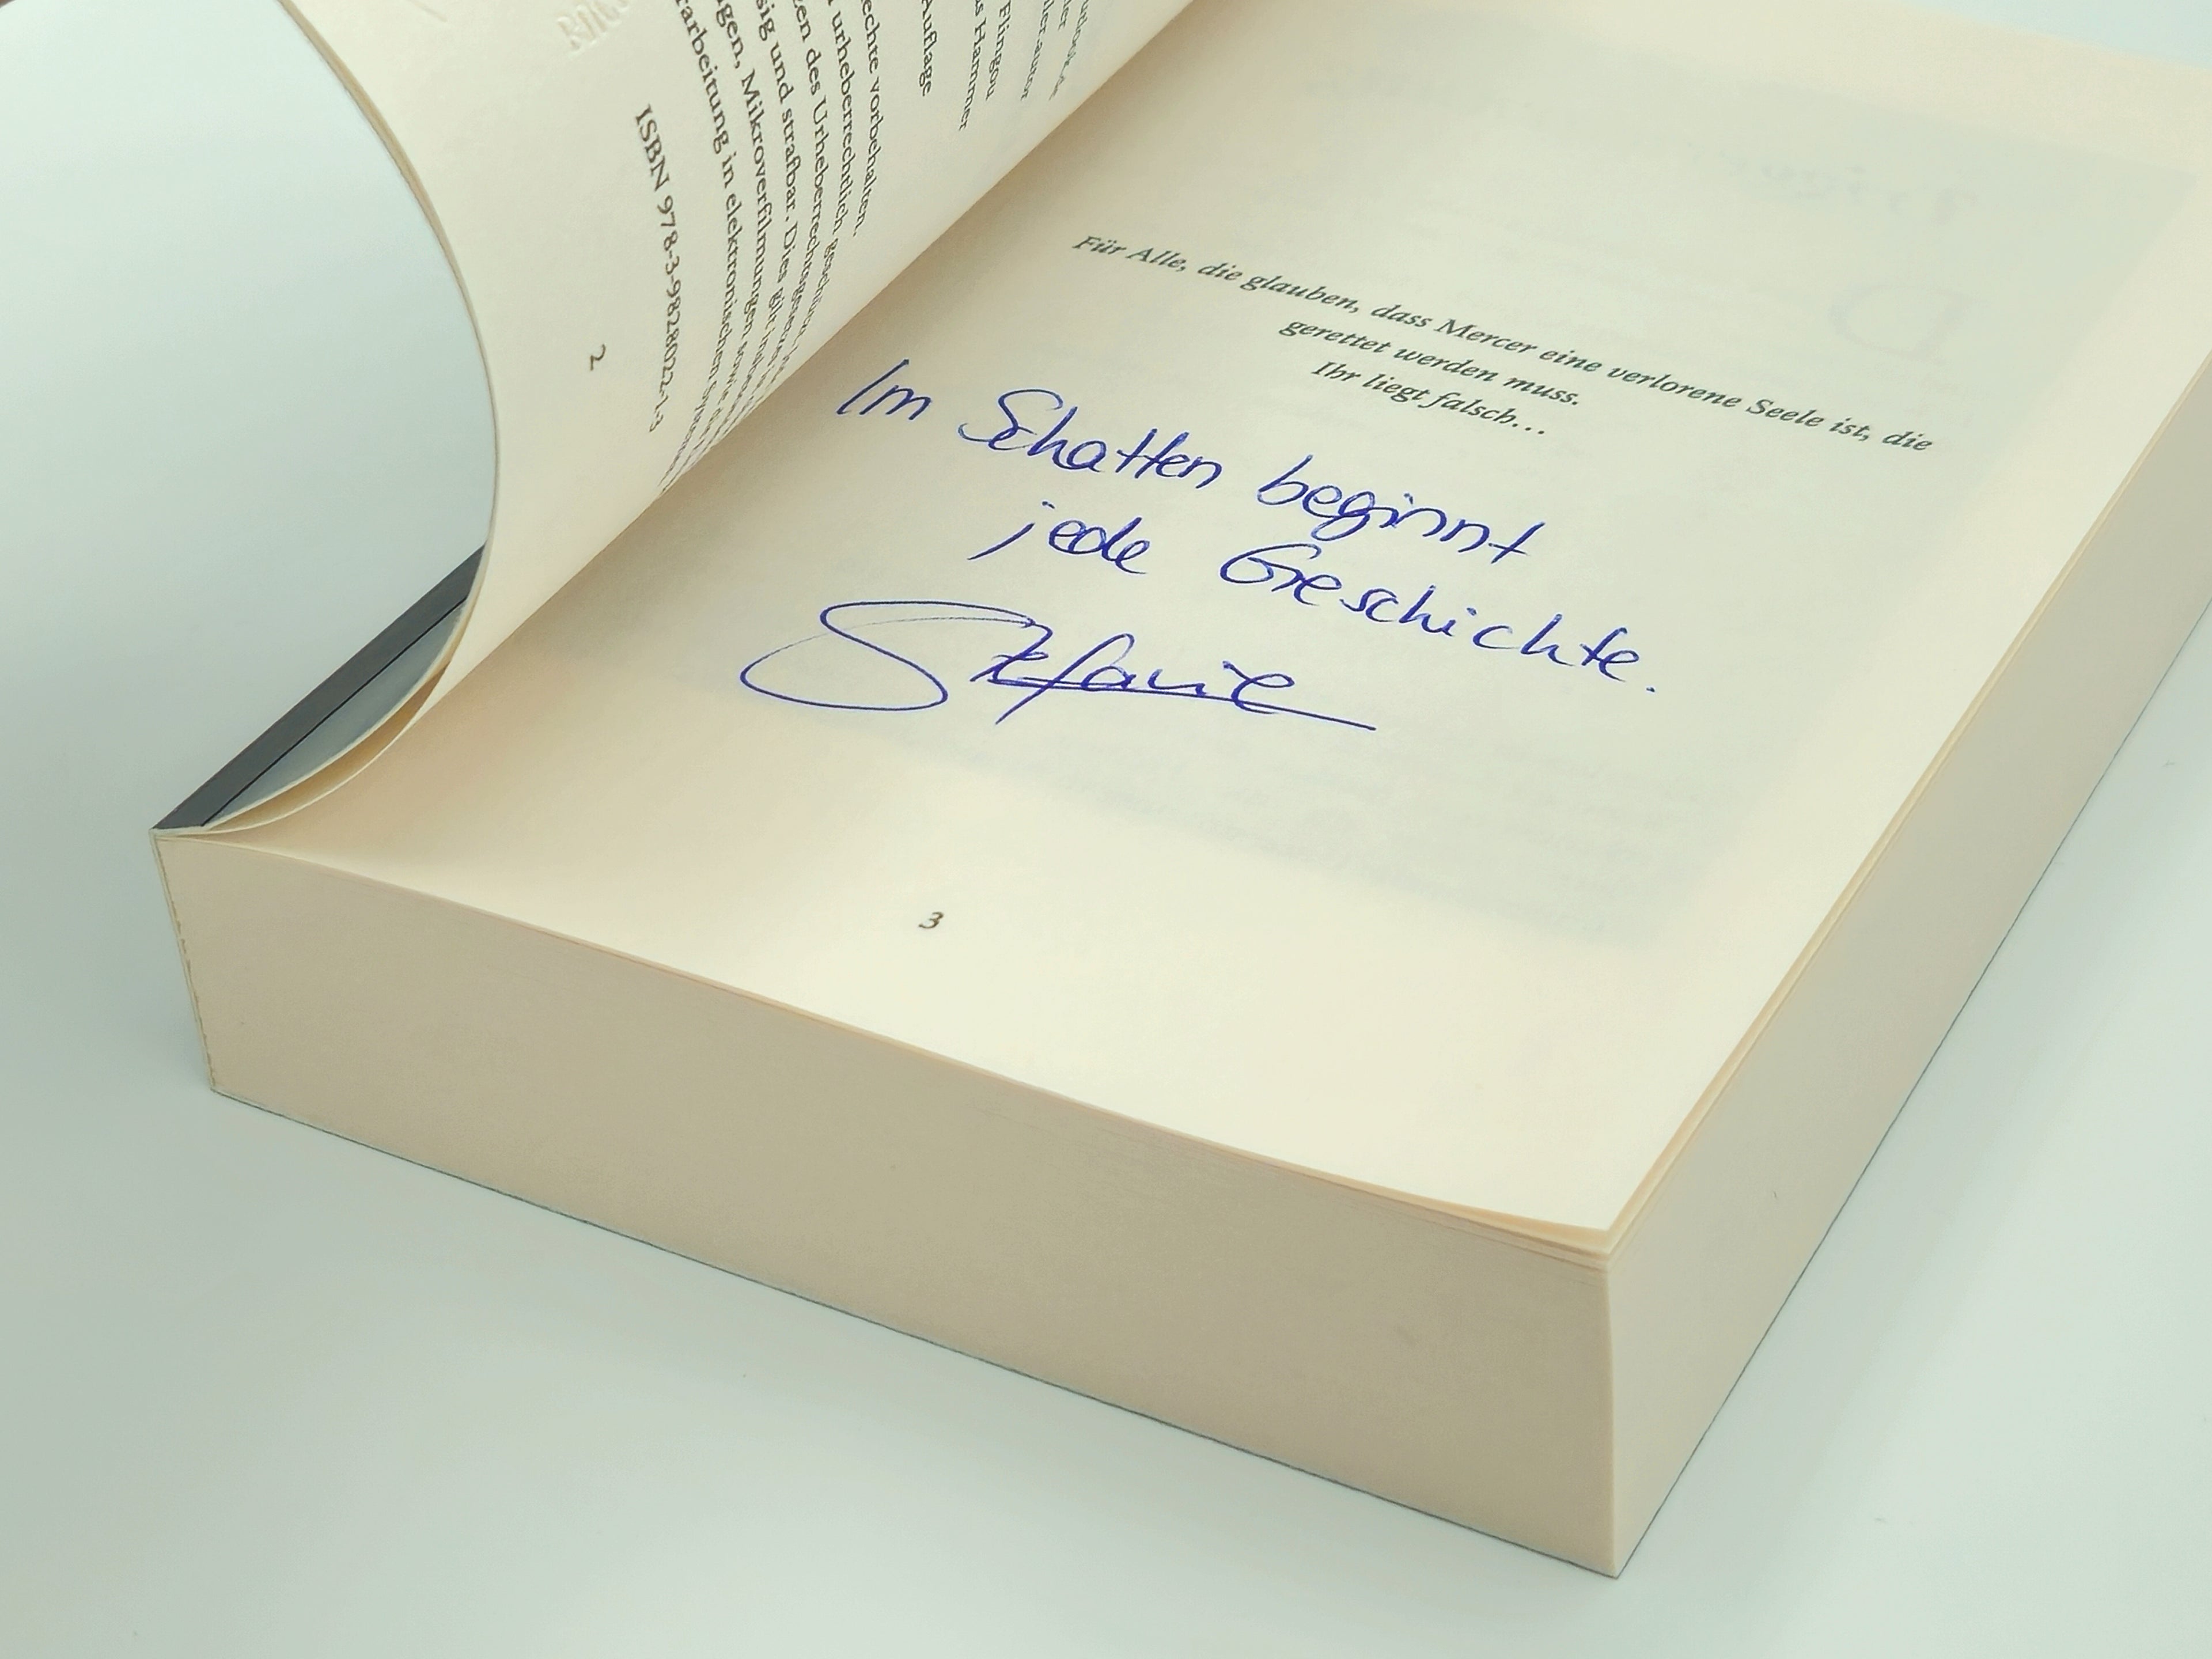 Auflage
Hammer
echte vorbehalten.
urheberrechtlich
des Urheberrechtsgesetzes
sig und strafbar. Dies gilt
gen, Mikroverfilmungen sowie
rarbeitung in elektronischen
ISBN 978-3-9828022-1-3
2
Für Alle, die glauben, dass Mercer eine verlorene Seele ist, die
gerettet werden muss.
Ihr liegt falsch...
Im Schatten beginnt
jede Geschichte.
Stefanie
3